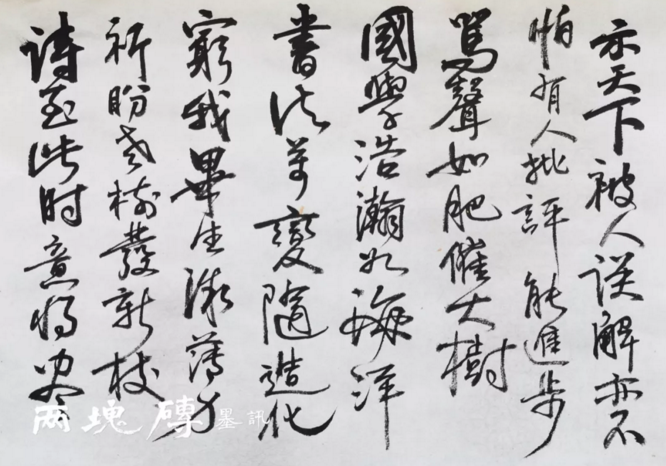 示天下被人误解亦不
怕有人批評能進步
罵聲如肥催大樹
國學浩瀚如海洋
書法萬變隨造化
窮我畢生微薄力
祈盼老樹發新枝
詩至此时意将尽
兩塊磚墨訊